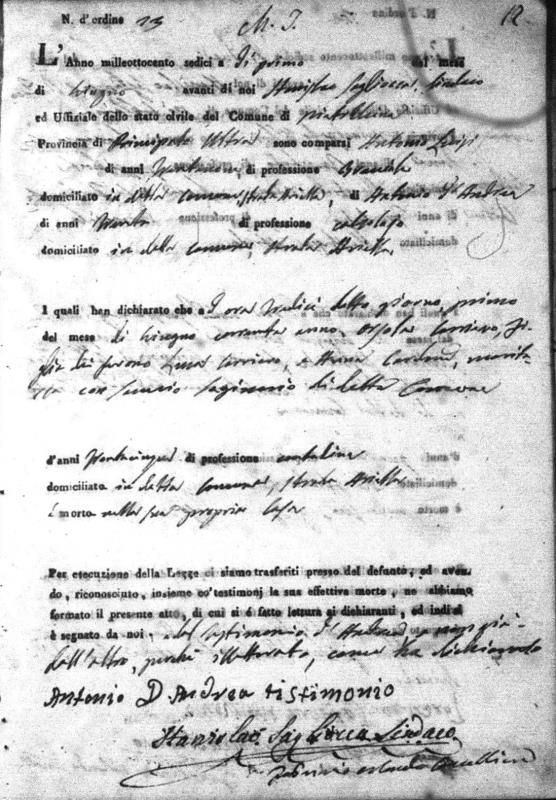 N. d'ordine 13 M. I. 12
L'Anno milleottocento sedici a di primo del mese
di Giugno avanti di noi Stanislao Sagliocca Sindaco
ed Uffiziale dello stato civile del Comune di
Provincia di Principato Ultra sono comparsi Antonio Luigi
di anni di professione
domiciliato in detta comune strada Arietta, di Antonio D'Andrea
di anni trenta di professione calzolajo
domiciliato in detta comune, strada Arietta
I quali han dichiarato che a d'ora tredici detto giorno primo
del mese di Giugno corrente anno, Orsola fi-
glia di Luca e Anna marita-
ta con di detta Comune
d'anni trentacinque di professione contadina
domiciliata in detta Comune, strada Arietta
è morta nella sua propria casa
Per esecuzione della Legge ci siamo trasferiti presso del defunto, ed aven-
do, riconosciuto, insieme co' testimonj la sua effettiva morte, ne abbiamo
formato il presente atto, di cui si é fatto lettura ai dichiaranti, ed indi si
è segnato da noi, e dal testimonio d'Andrea e non già
dall'altro, perché illetterato, come ha dichiarato
Antonio D Andrea tistimonio
Stanislao Sagliocca Sindaco